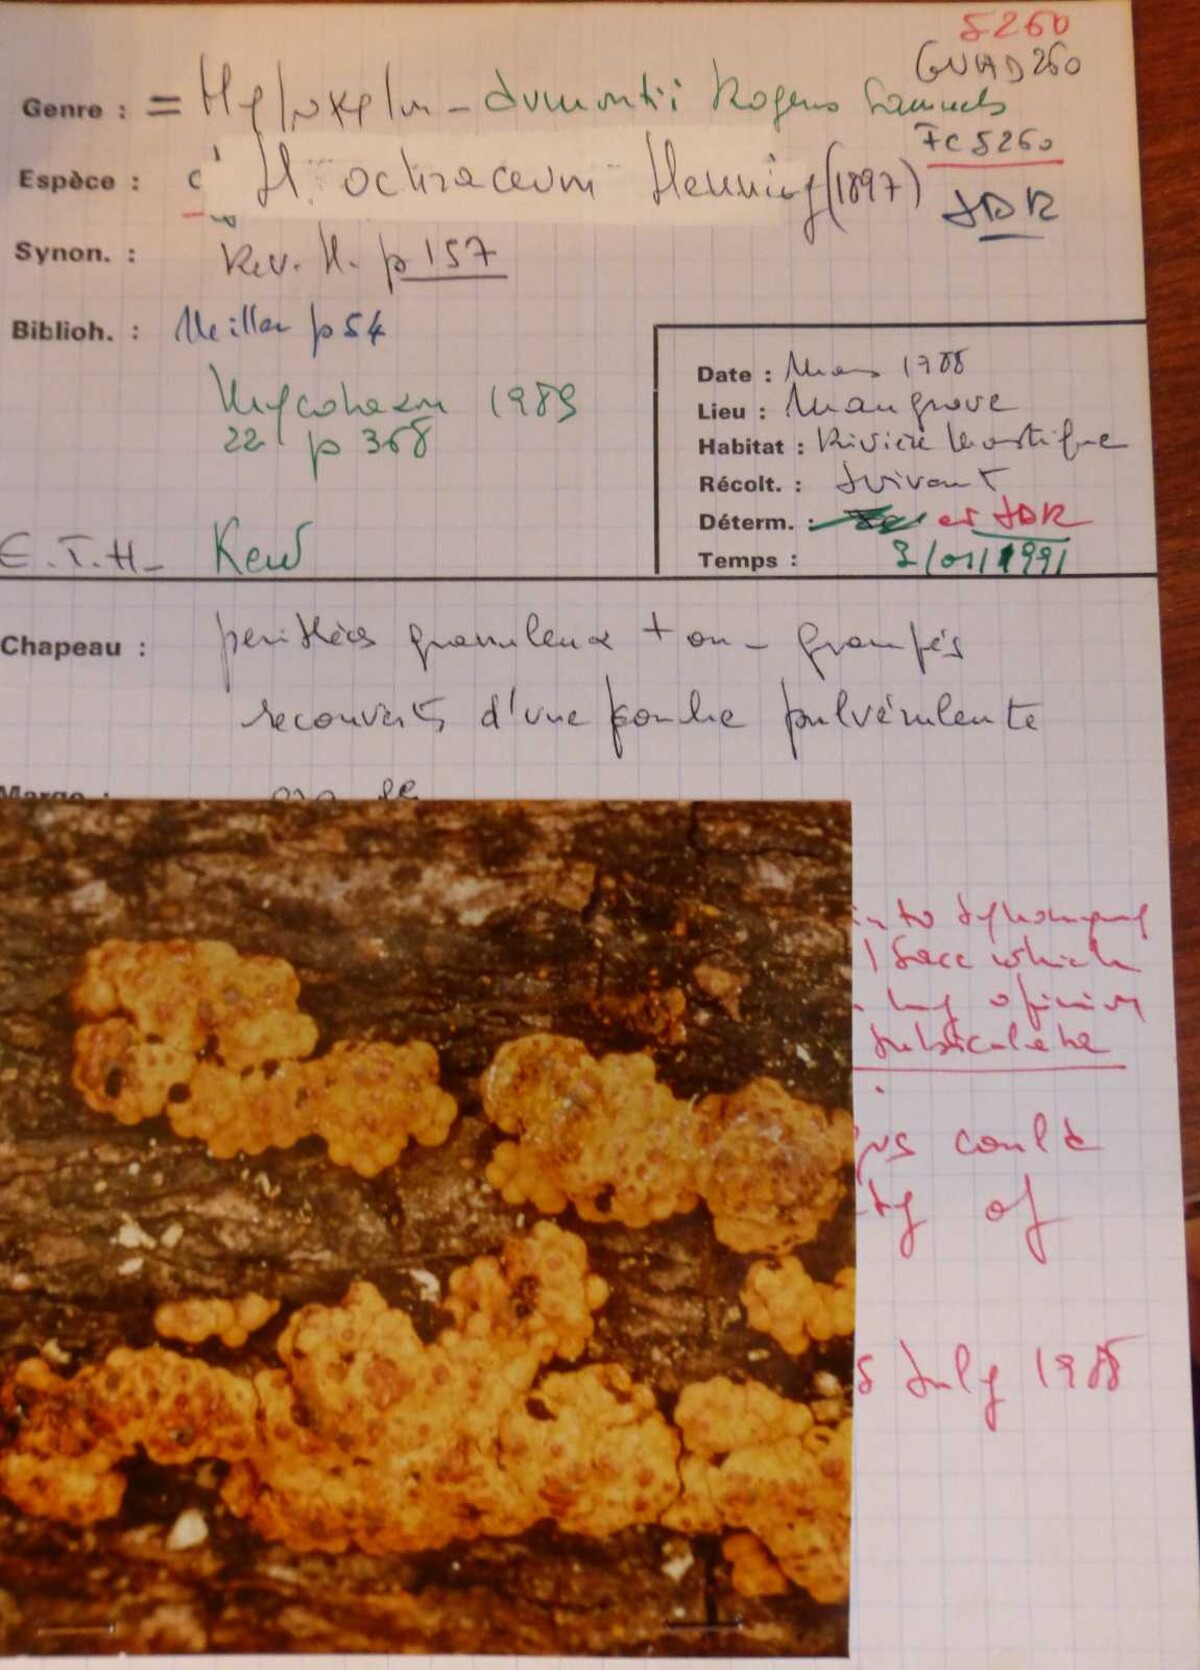 5260
GUAD 260
Genre : = Hypoxylon - dumontii Rogers Samuels
FC 5260
Espèce : H. ochraceum Henning (1897)
JDR
Synon. : Rev. H. p 157
Biblioh. : Miller p 54
Mycotaxon 1985
22 p 368
E.T.H- Kew
Date : Mars 1988
Lieu : Mangrove
Habitat : Rivière Moustique
Récolt. : Suivant
Déterm. : et JDR
Temps : /01/1991
Chapeau : perithèces granuleux + ou - groupés
recouverts d'une couche pulvérulente
Marge :
into synonymy
Sacc which
my opinion
subiculate
could
ty of
5 July 1988